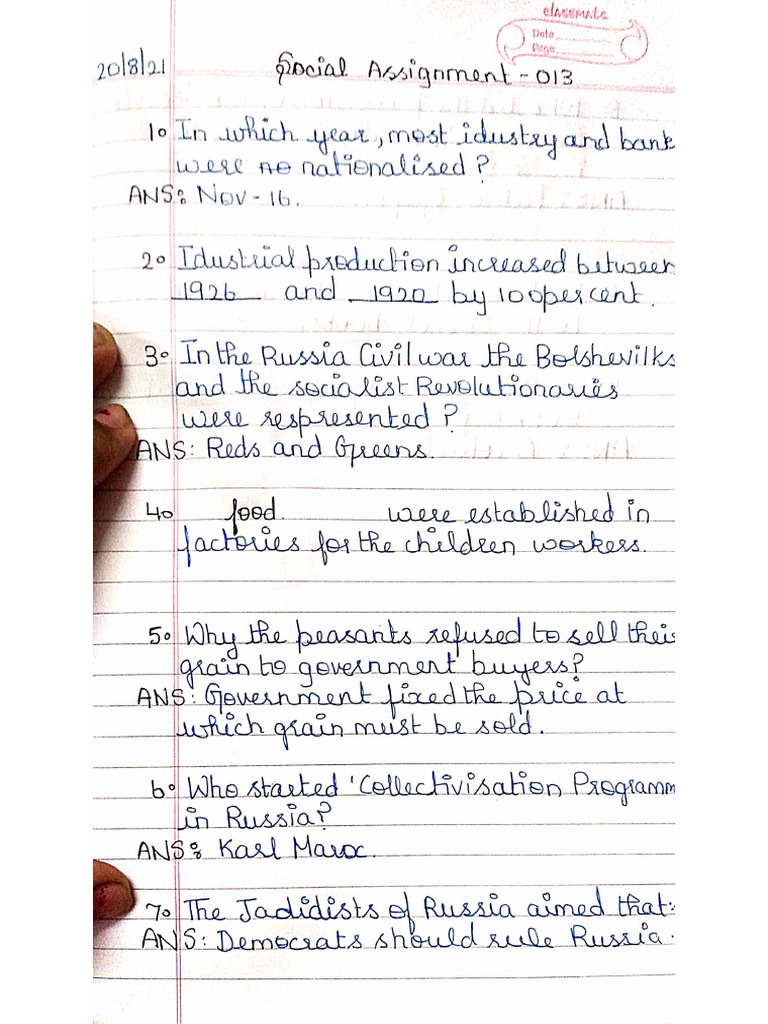 classmate
Date
Page
20/8/21 Social Assignment - 013
1. In which year, most idustry and bank
were nationalised?
ANS: Nov - 16.
2. Idustrial production increased between
1926 and 1920 by 100 per cent.
3. In the Russia Civil war the Bolshevilks
and the socialist Revolutionaries
were respresented?
ANS: Reds and Greens.
4. food were established in
factories for the children workers.
5. Why the peasants refused to sell their
grain to government buyers?
ANS: Government fixed the price at
which grain must be sold.
6. Who started 'Collectivisation Programm
in Russia?
ANS: Karl Marox.
7. The Jadidists of Russia aimed that:
ANS: Democrats should rule Russia.